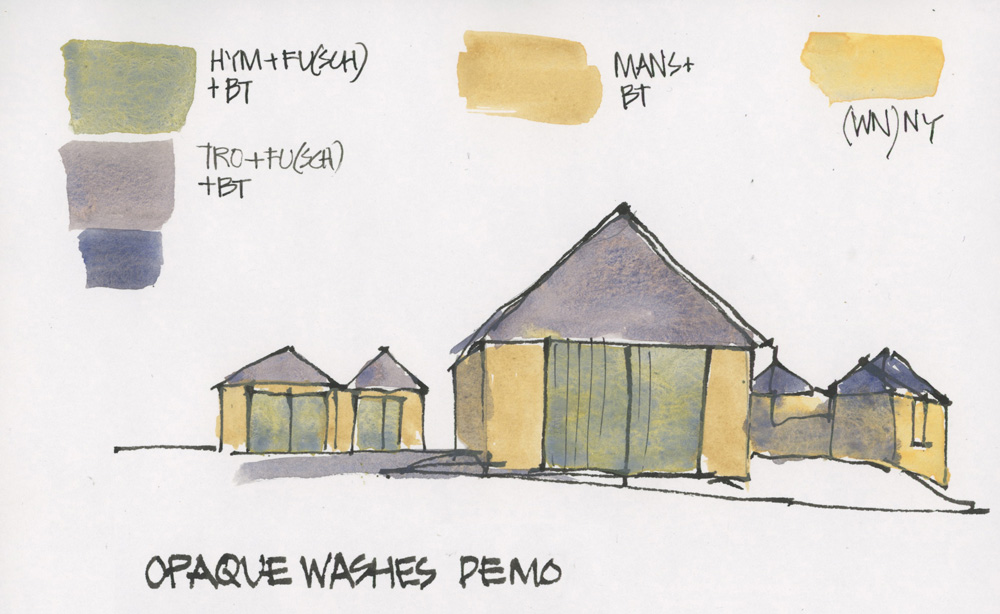 HYM+FU(SCH)
+BT
MANS+
BT
(WN)NY
TRO+FU(SCH)
+BT
OPAQUE WASHES DEMO